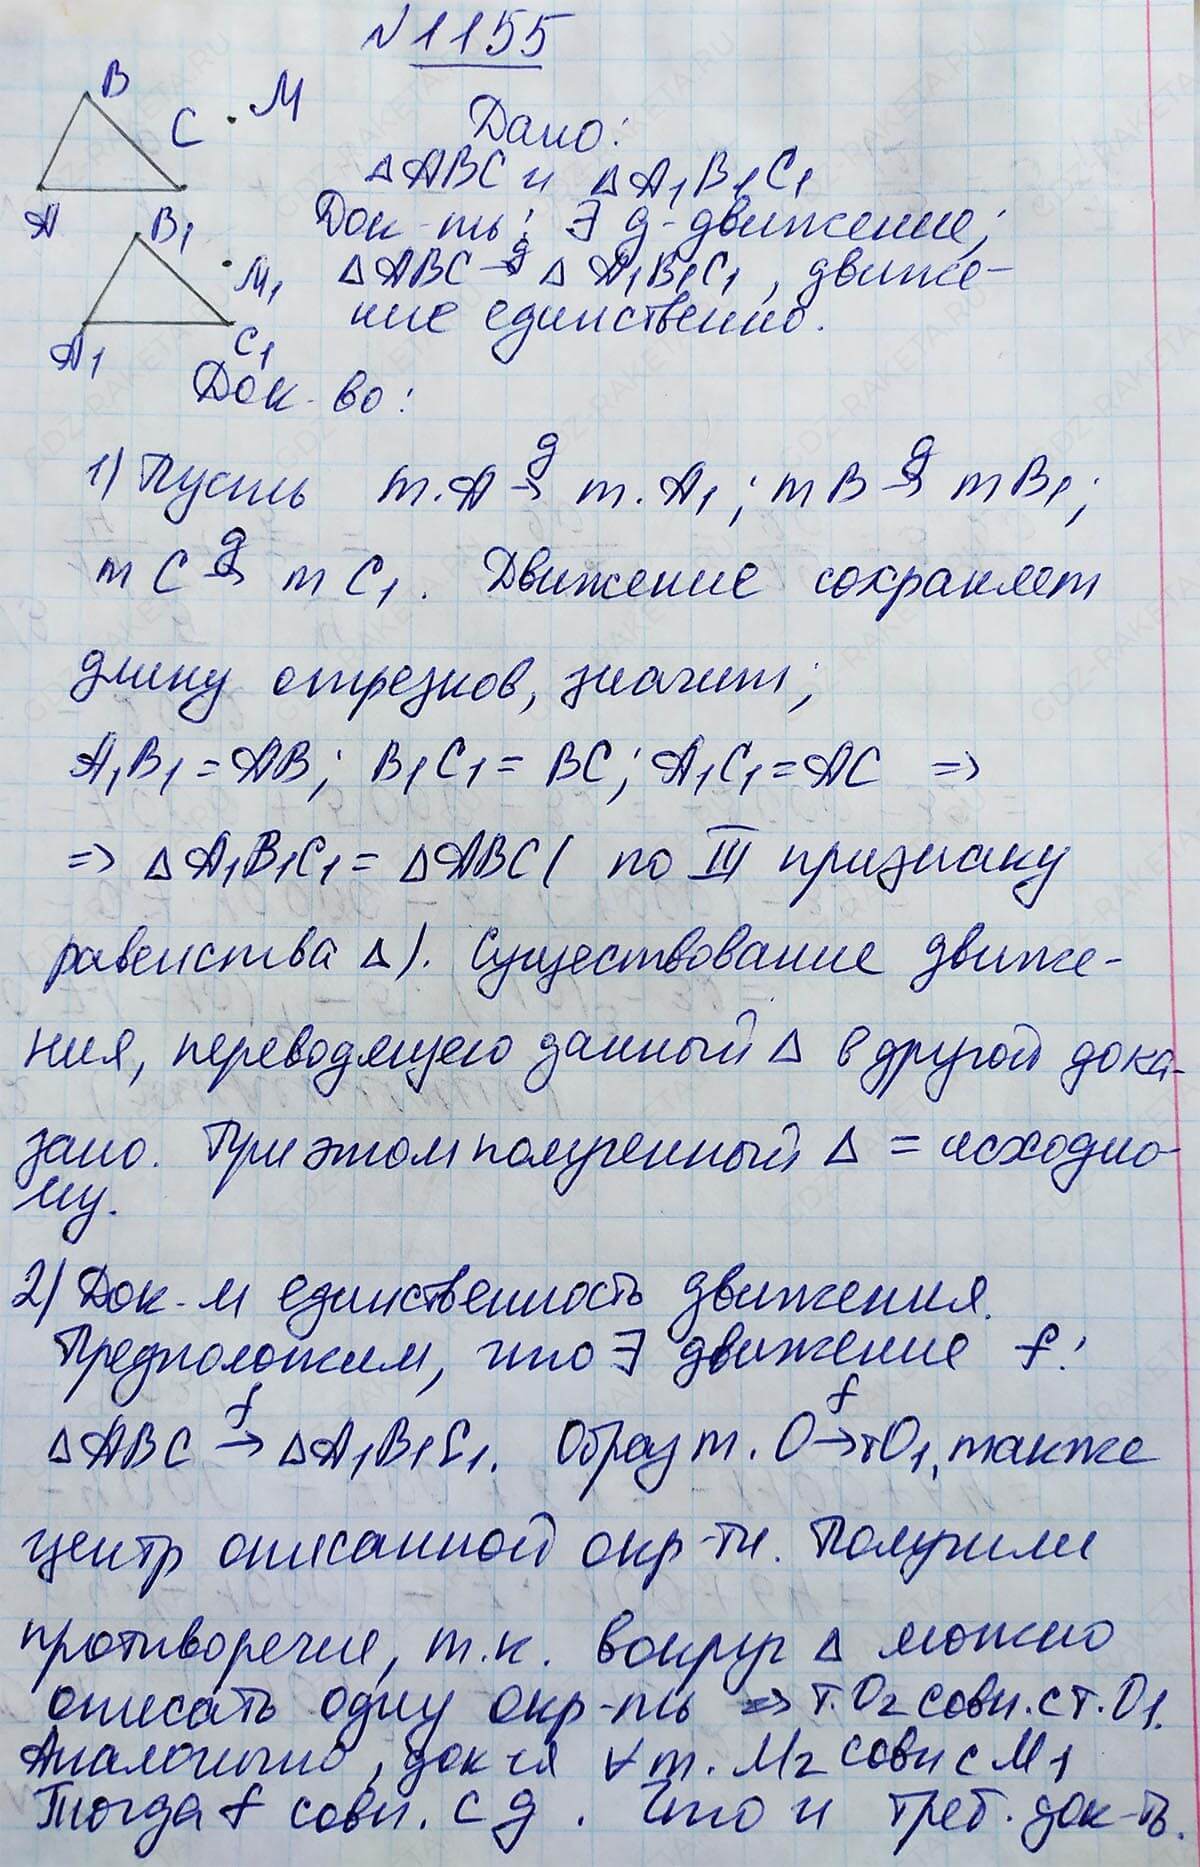 №1155
B
C
M
Дано:
△ABC и △A₁B₁C₁
A
B₁
Док-ть: ∃ g-движение;
M₁
△ABC →g △A₁B₁C₁, движе-
ние единственно.
A₁
C₁
Док-во:
1) Пусть т.A →g т.A₁; тB →g тB₁;
тC →g тC₁. Движение сохраняет
длину отрезков, значит;
A₁B₁=AB; B₁C₁=BC; A₁C₁=AC =>
=> △A₁B₁C₁=△ABC( по III признаку
равенства △). Существование движе-
ния, переводящего данный △ в другой дока-
зано. При этом полученный △ = исходно-
му.
2) Док-м единственность движения.
Предположим, что ∃ движение f:
△ABC →f △A₁B₁C₁. Образ т. O →f тO₁, также
центр описанной окр-ти. Получили
противоречие, т.к. вокруг △ можно
описать одну окр-ть => т.O₂ совп. с т.O₁.
Аналогично, док-ся ∀ т. M₂ совп с M₁
Тогда f совп. с g. Что и треб. док-ть.
GDZ-RAKETA.RU